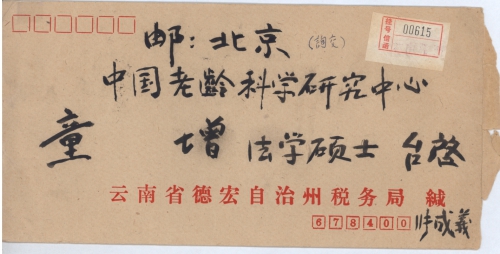 邮:北京
挂号
00615
中国老龄科学研究中心
童 增 法学硕士 台啓
云南省德宏自治州税务局 緘
678400
成義